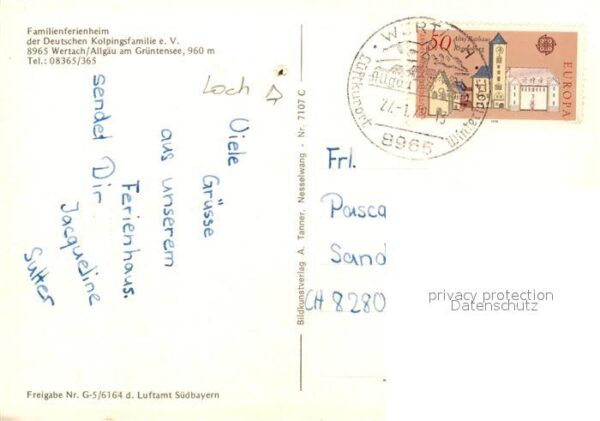 Familienferienheim
der Deutschen Kolpingsfamilie e. V.
8965 Wertach/Allgäu am Grüntensee, 960 m
Tel.: 08365/365
Loch
Viele
Grüsse
aus unserem
Ferienhaus.
sendet Dir
Jacqueline
Sutter
Bildkunstverlag A. Tanner, Nesselwang - Nr. 7107 C
50
Altes Rathaus
Regensburg
EUROPA
Luftkurort
8965
Frl.
Pasca
Sand
CH 8280
privacy protection
Datenschutz
Freigabe Nr. G-5/6164 d. Luftamt Südbayern